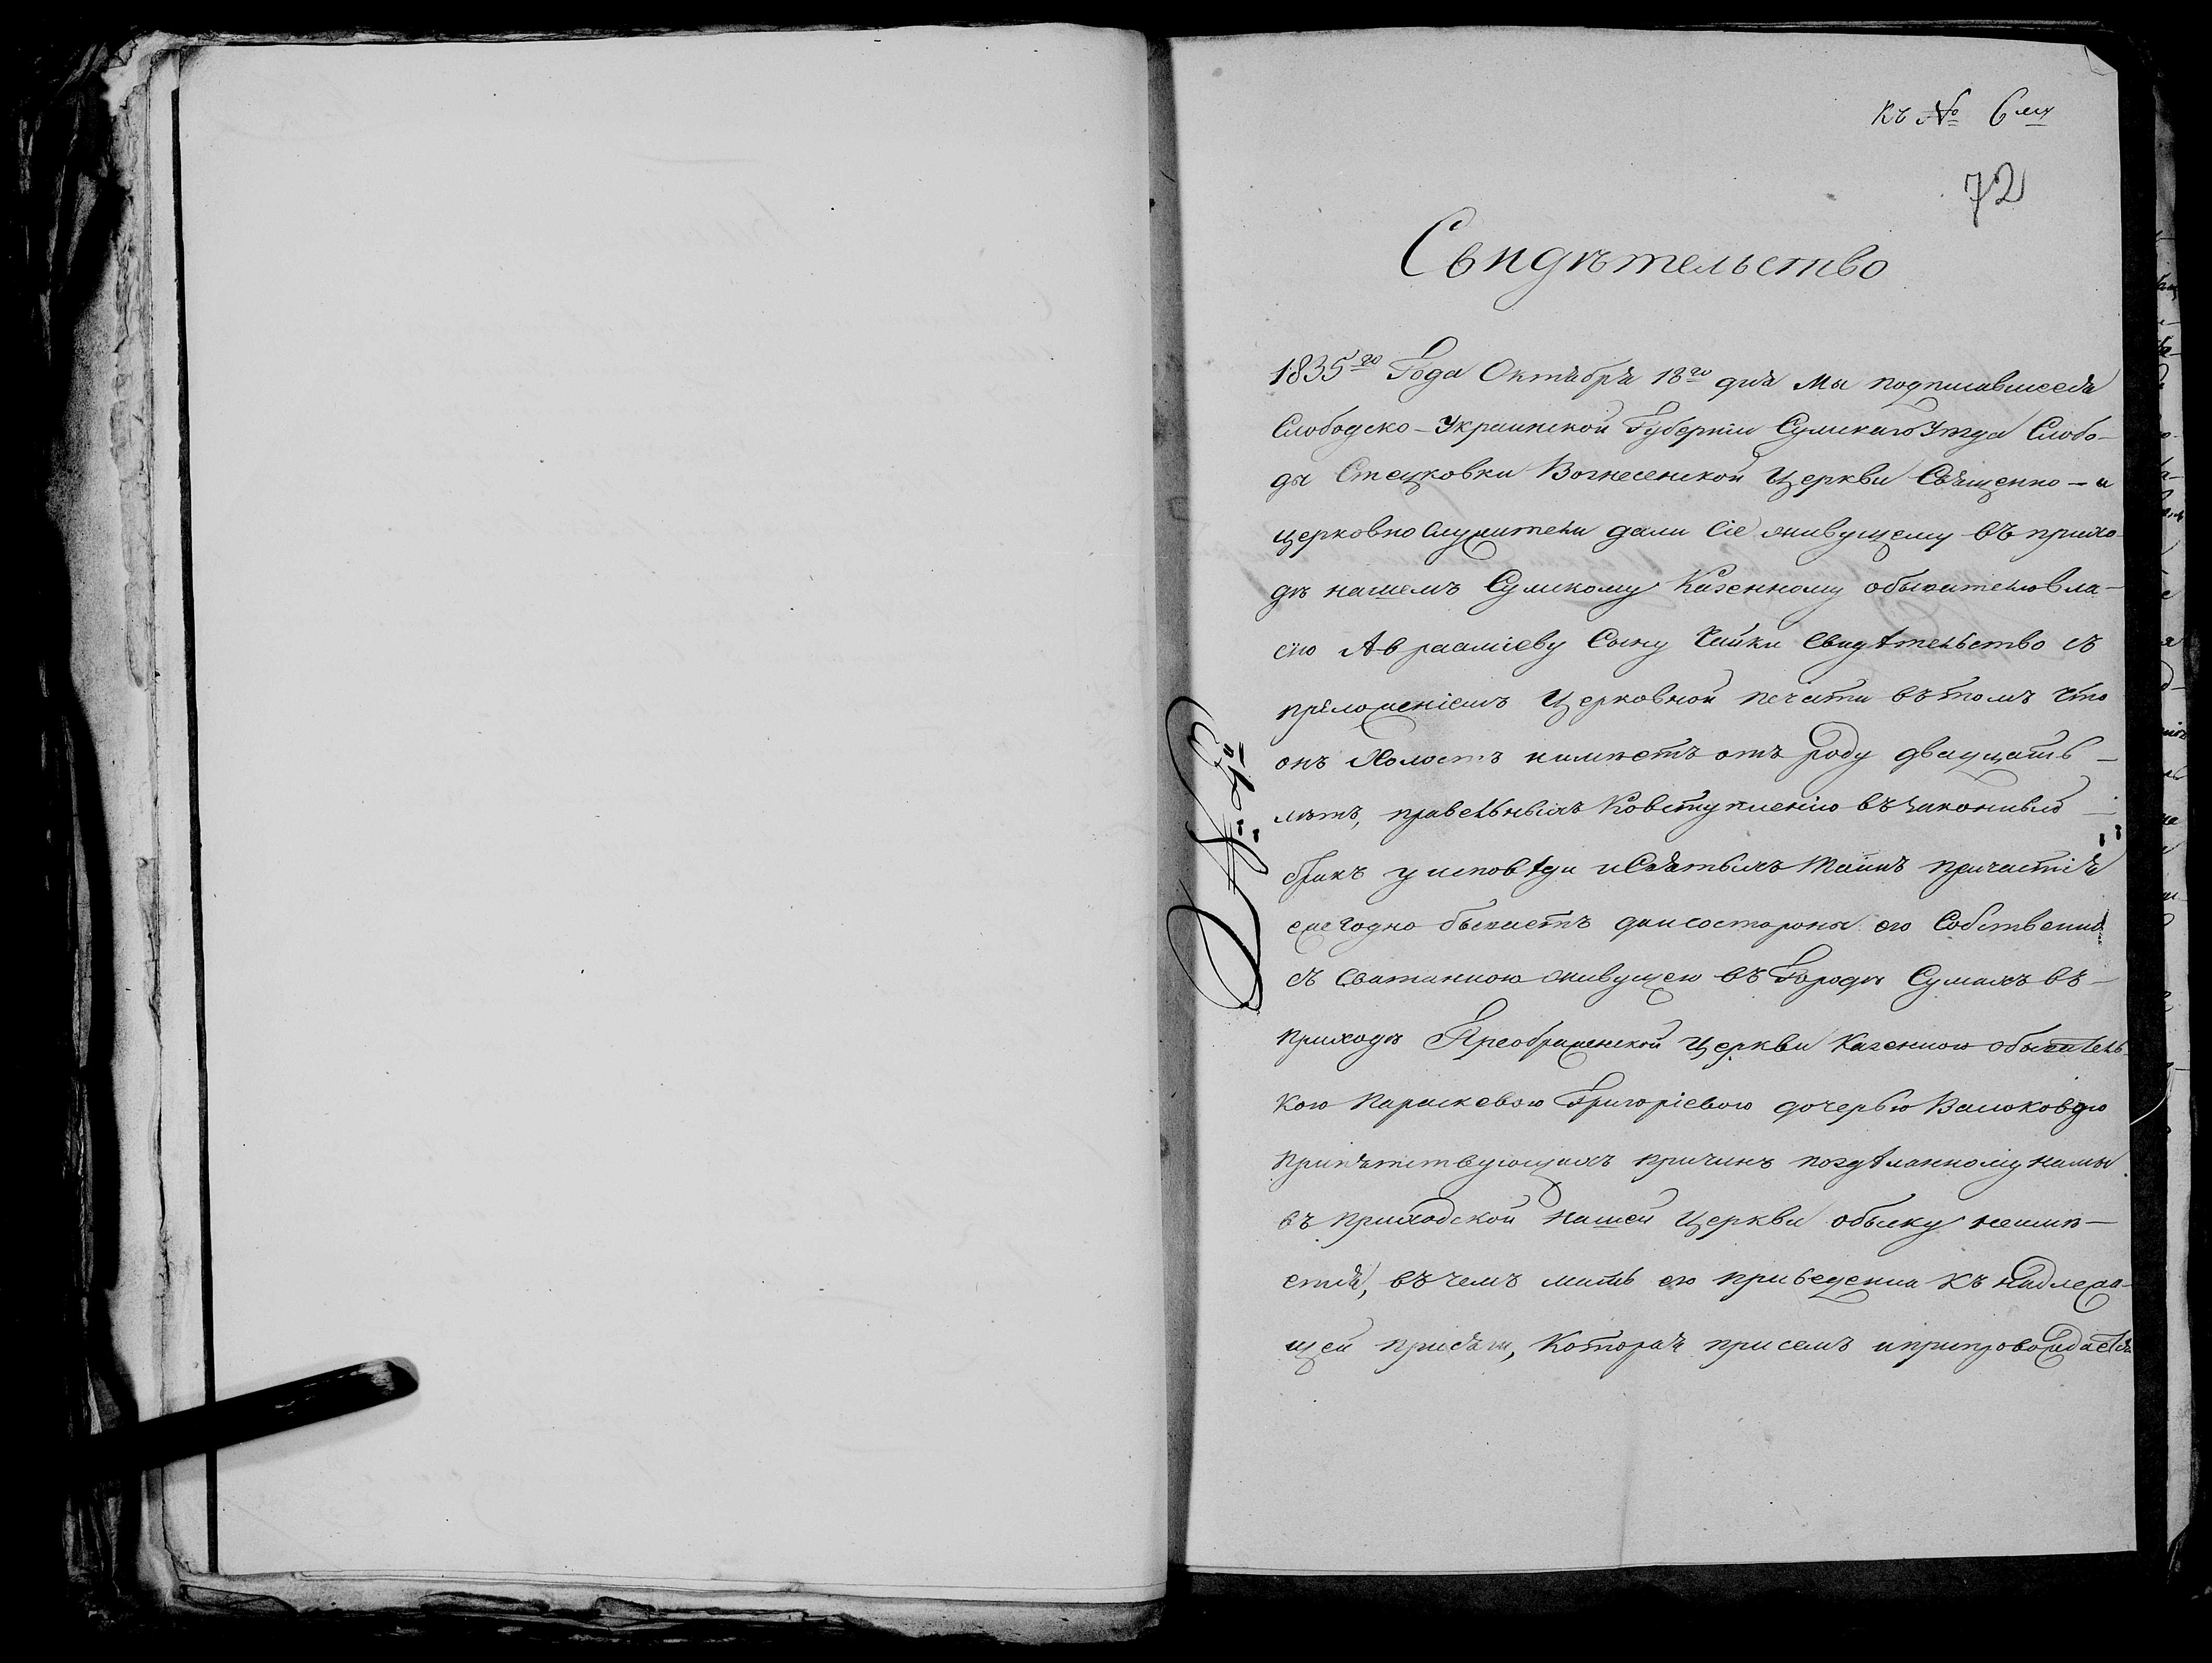 Къ № 6му
72
Свидѣтельство
1835го Года Октября 18го дня Мы подписавшееся
Слободско-Украинской Губерніи Сумскаго Уѣзда Слобо-
ды Стецковки Вознесенской Церкви Священно-и
церковнослужители дали сіе живущему въ прихо
дѣ нашемъ Сумскому Казенному обывателю Вла-
сію Аврааміеву Сыну Чайки Свидѣтельство съ
приложеніемъ Церковной печати въ томъ что
онъ Холостъ имѣетъ отъ роду двадцать
лѣтъ, къ вступленію въ законный
бракъ у исповѣди и Святыхъ Таинъ причастія
ежегодно бываетъ со стороны его Собственно
съ сватанною живущею въ Городѣ Сумахъ въ
приходѣ Преображенской Церкви Казенною обыватель
кою Параскевою Григоріевою дочерью Валюковою
Припятствующихъ причинъ по здѣланному нами
въ приходской нашей Церкви обыску неимѣ-
ется, въ чемъ мать его приведенна къ надлежа-
щей присяги, Которая присемъ ипрепровождается